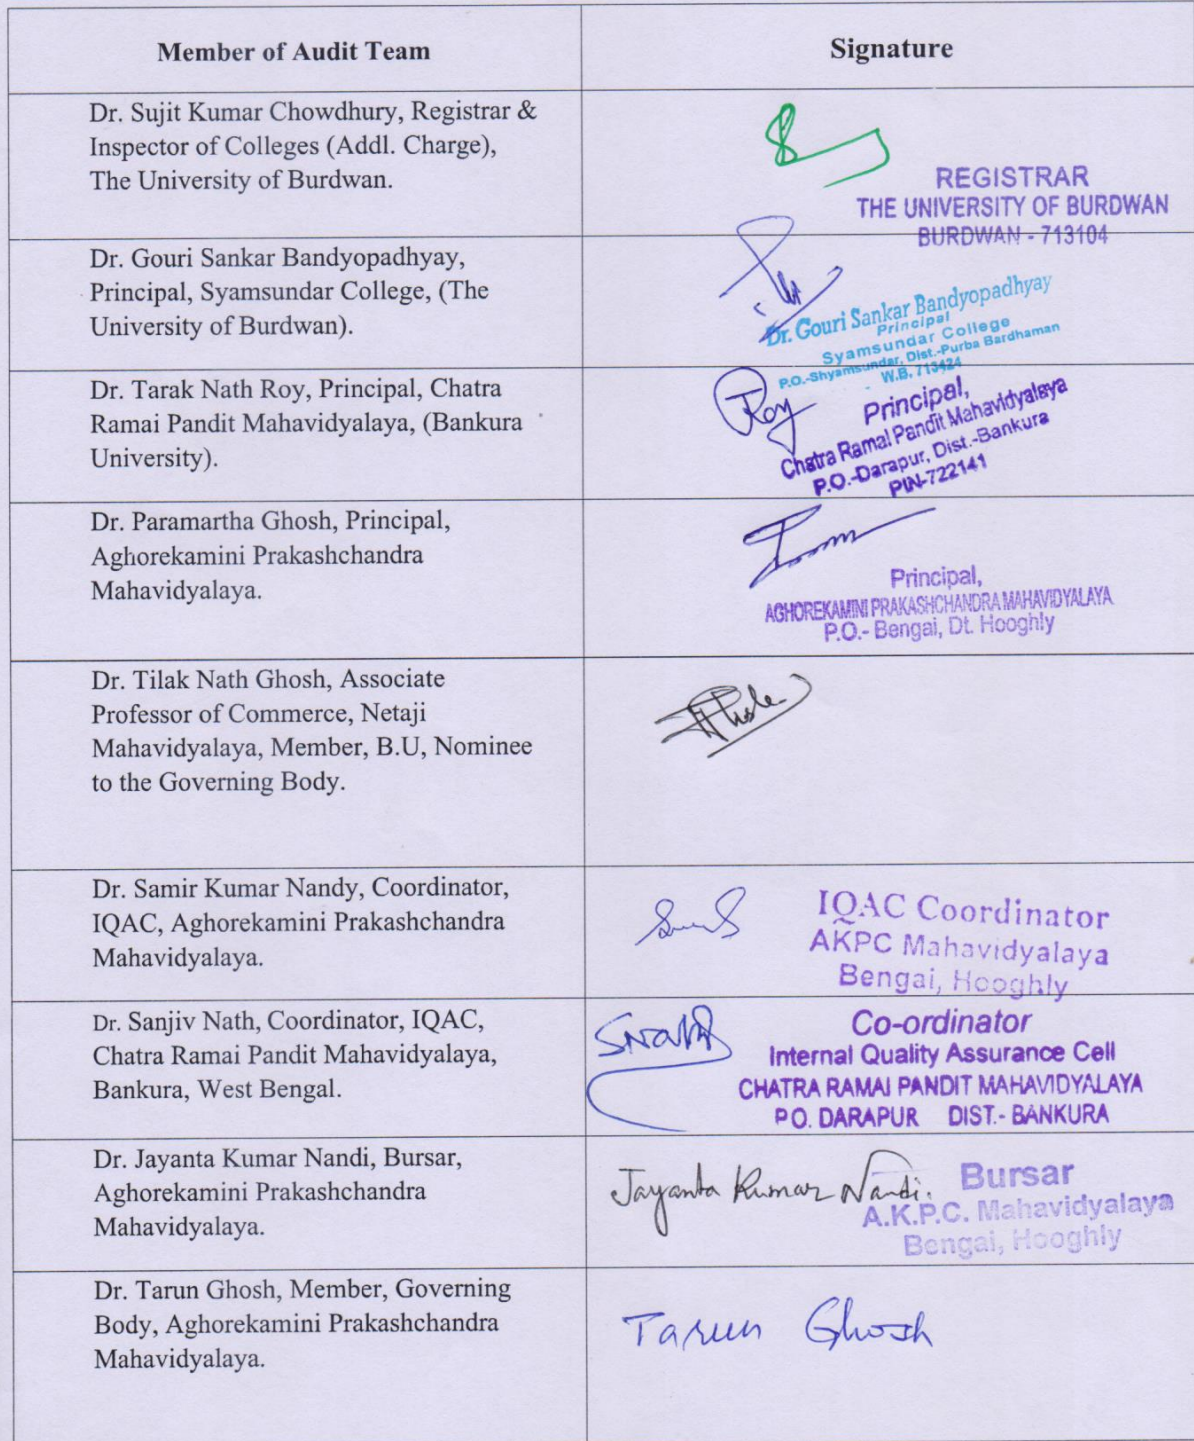 Member of Audit Team
Signature
Dr. Sujit Kumar Chowdhury, Registrar &
Inspector of Colleges (Addl. Charge),
The University of Burdwan.
REGISTRAR
THE UNIVERSITY OF BURDWAN
BURDWAN - 713104
Dr. Gouri Sankar Bandyopadhyay,
Principal, Syamsundar College, (The
University of Burdwan).
Dr. Gouri Sankar Bandyopadhyay
Principal
Syamsundar College
P.O.-Shyamsundar, Dist.-Purba Bardhaman
W.B, 713424
Dr. Tarak Nath Roy, Principal, Chatra
Ramai Pandit Mahavidyalaya, (Bankura
University).
Roy
Principal,
Chatra Ramai Pandit Mahavidyalaya
P.O.-Darapur, Dist.-Bankura
PIN-722141
Dr. Paramartha Ghosh, Principal,
Aghorekamini Prakashchandra
Mahavidyalaya.
Principal,
AGHOREKAMINI PRAKASHCHANDRA MAHAVIDYALAYA
P.O.- Bengai, Dt. Hooghly
Dr. Tilak Nath Ghosh, Associate
Professor of Commerce, Netaji
Mahavidyalaya, Member, B.U, Nominee
to the Governing Body.
Dr. Samir Kumar Nandy, Coordinator,
IQAC, Aghorekamini Prakashchandra
Mahavidyalaya.
IQAC Coordinator
AKPC Mahavidyalaya
Bengai, Hooghly
Dr. Sanjiv Nath, Coordinator, IQAC,
Chatra Ramai Pandit Mahavidyalaya,
Bankura, West Bengal.
SNath
Co-ordinator
Internal Quality Assurance Cell
CHATRA RAMAI PANDIT MAHAVIDYALAYA
P.O. DARAPUR DIST.- BANKURA
Dr. Jayanta Kumar Nandi, Bursar,
Aghorekamini Prakashchandra
Mahavidyalaya.
Jayanta Kumar Nandi.
Bursar
A.K.P.C. Mahavidyalaya
Bengai, Hooghly
Dr. Tarun Ghosh, Member, Governing
Body, Aghorekamini Prakashchandra
Mahavidyalaya.
Tarun Ghosh